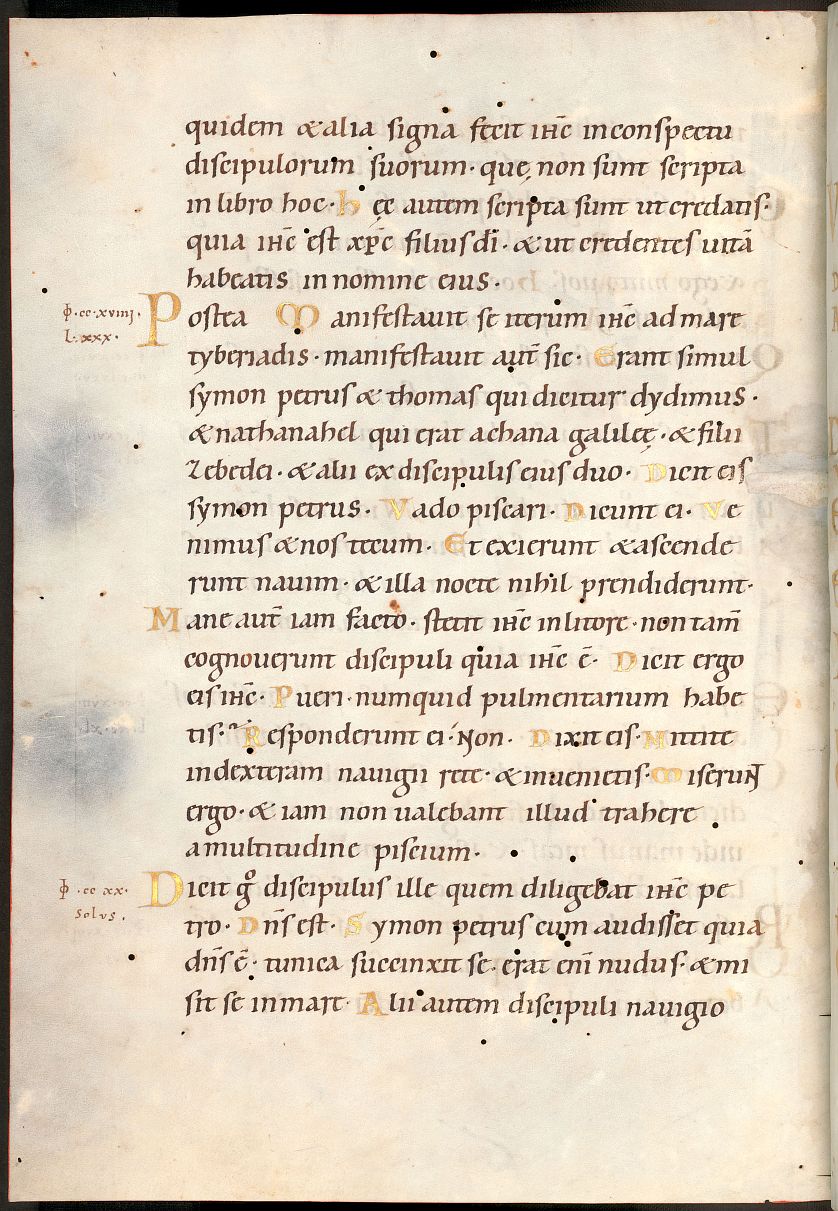 quidem & alia signa fecit ihc̄ in conspectu
discipulorum suorum · quę non sunt scripta
in libro hoc · hęc autem scripta sunt ut credatis ·
quia ihc̄ est xp̄c filius dī · & ut credentes uitā
habeatis in nomine eius ·
Φ · cc · xviiii ·
l · xxx ·
Postea Manifestauit se iterum ihc̄ ad mare
tyberiadis · manifestauit aut̄ sic · Erant simul
symon petrus & thomas qui dicitur dydimus ·
& nathanahel qui erat achana galileę · & filii
zebedei · & alii ex discipulis eius duo · Dicit eis
symon petrus · Vado piscari · Dicunt ei · Ve
nimus & nos tecum · Et exierunt & ascende
runt nauim · & illa nocte nihil prendiderunt ·
Mane aut̄ iam facto · stetit ihc̄ in litore · non tam̄
cognouerunt discipuli quia ihc̄ ē · Dicit ergo
eis ihc̄ · Pueri · numquid pulmentarium habe
tis · Responderunt ei · Non · Dixit eis · Mittite
in dexteram nauigii rete · & inuenietis · Miserunt
ergo · & iam non ualebant illud trahere
a multitudine piscium ·
Φ · cc xx ·
solvs ·
Dicit gͦ discipulus ille quem diligebat ihc̄ pe
tro · Dn̄s est · Symon petrus cum audisset quia
dn̄s ē · tunica succinxit se · erat eni̅ nudus · & mi
sit se in mare · Alii autem discipuli nauigio